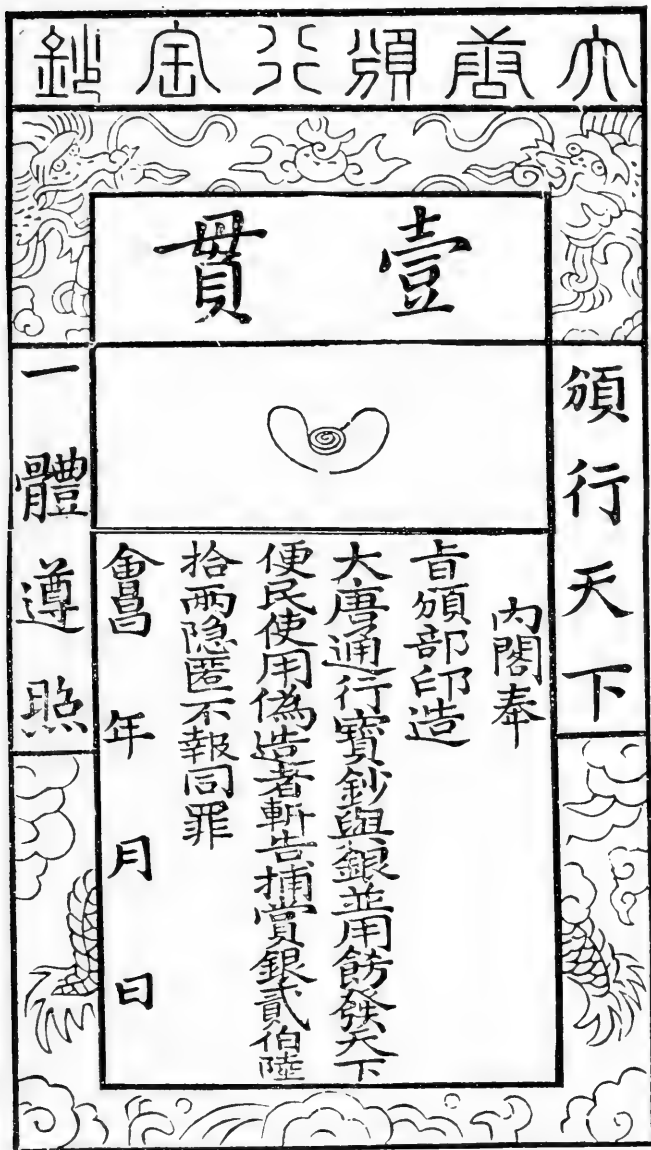 大唐頒行寶鈔
壹貫
頒行天下
一體遵照
內閣奉
旨頒部印造
大唐通行寶鈔與銀並用餝發天下
便民使用偽造者斬告捕賞銀貳伯陸
拾兩隐匿不報同罪
會昌 年 月 日